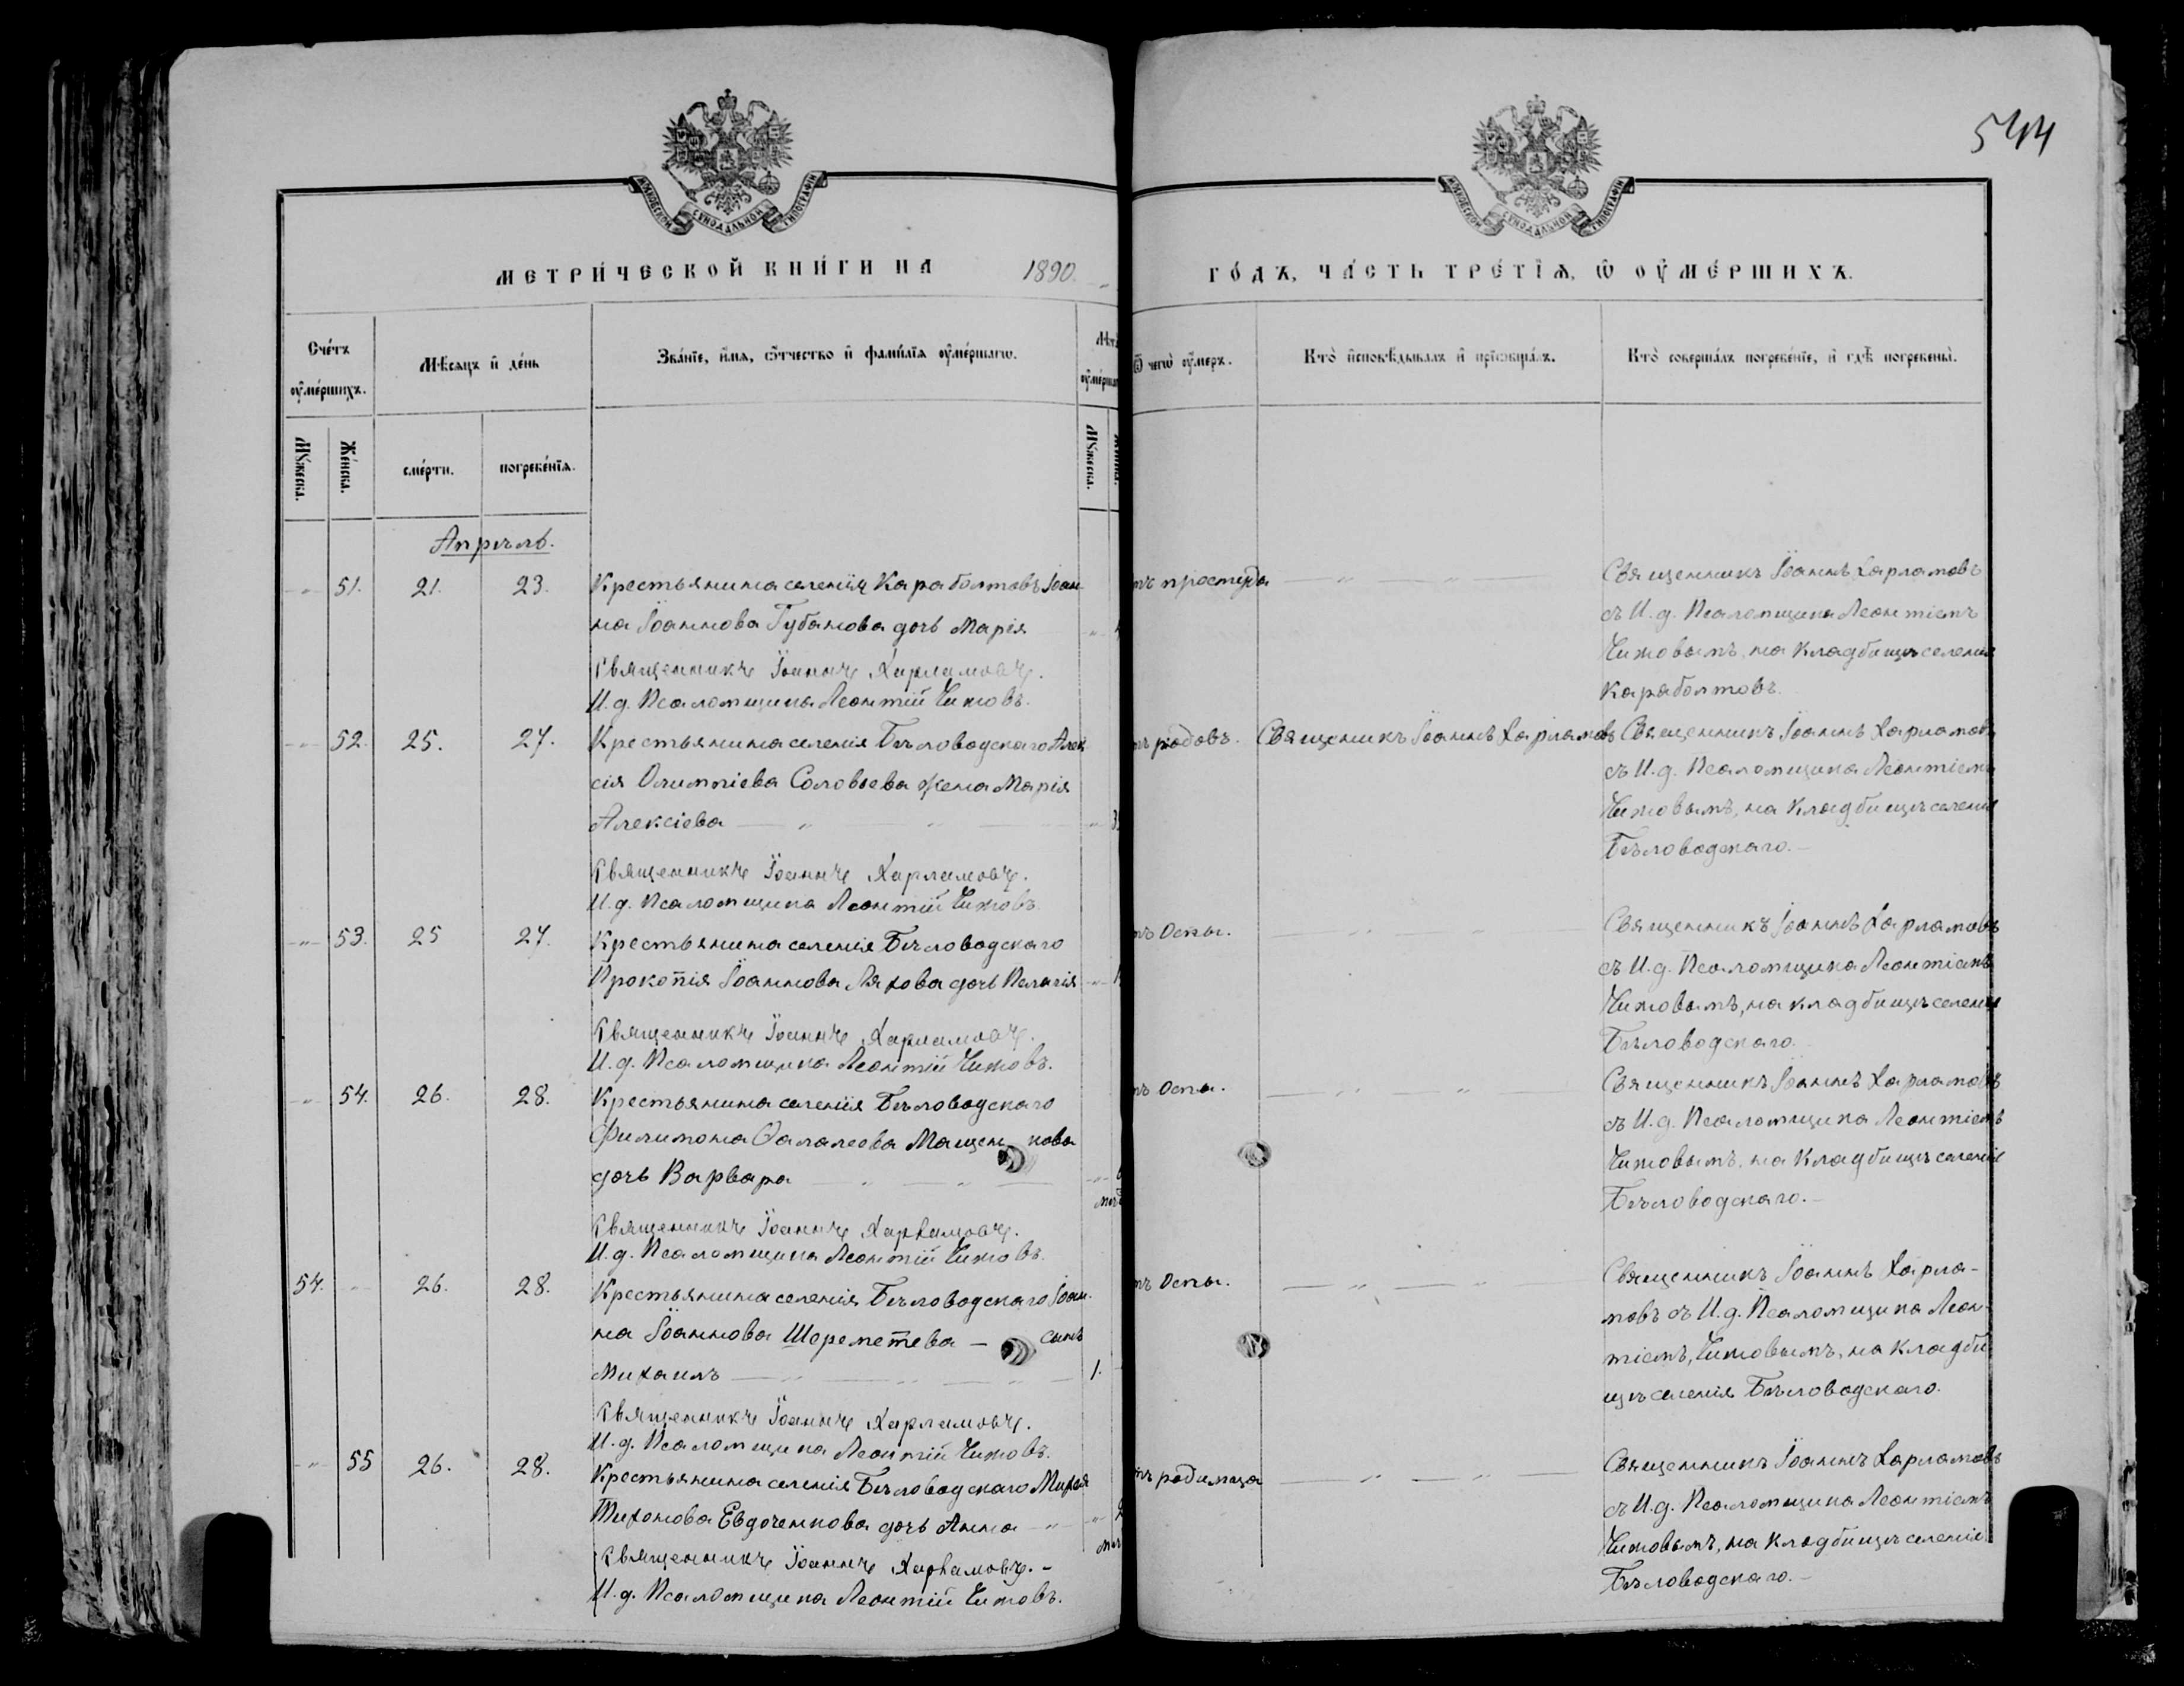 544
МОСКОВСКОЙ СѴНОДАЛЬНОЙ ТИПОГРАФІИ
МОСКОВСКОЙ СѴНОДАЛЬНОЙ ТИПОГРАФІИ
МЕТРИ́ЧЕСКОЙ КНИ́ГИ НА 1890. ГО́ДЪ, ЧА́СТЬ ТРЕ́ТІѦ, Ѡ ОУ҆МЕ́РШИХЪ.
Сче́тъ оу҆ме́ршихъ.
Мѣ́сяцъ и҆ де́нь
Зва́нїе, и҆́мя, ѻ҆́тчество и҆ фами́лїя оу҆ме́ршагѡ.
Ѿ чегѡ̀ оу҆́меръ.
Кто̀ и҆сповѣ́дывалъ и҆ прїѡбща́лъ.
Кто̀ соверша́лъ погребе́нїе, и҆ гдѣ̀ погребены̀.
Мꙋ́жеска.
Же́нска.
сме́рти.
погребе́нїя.
Мꙋ́жеска.
Апрѣль.
51. 21. 23. Крестьянина селенія Караболтовъ Іоан-
на Іоаннова Губанова дочь Марія
Священникъ Іоаннъ Харламовъ.
И.д. Псаломщика Леонтій Чижовъ.
простуда
Священникъ Іоаннъ Харламовъ
съ И.д. Псаломщика Леонтіемъ
Чижовымъ, на кладбищѣ селенія
Караболтовъ.
52. 25. 27. Крестьянина селенія Бѣловодскаго Алек
сія Олимпіева Соловьева жена Марія
Алексіева
Священникъ Іоаннъ Харламовъ.
И.д. Псаломщика Леонтій Чижовъ.
родовъ. Священикъ Іоаннъ Харламовъ
Священникъ Іоаннъ Харламовъ
съ И.д. Псаломщика Леонтіемъ
Чижовымъ, на кладбищѣ селенія
Бѣловодскаго.
53. 25 27. Крестьянина селенія Бѣловодскаго
Прокопія Іоаннова Ляхова дочь Пелагія
Священникъ Іоаннъ Харламовъ.
И.д. Псаломщика Леонтій Чижовъ.
Оспы.
Священникъ Іоаннъ Харламовъ
съ И.д. Псаломщика Леонтіемъ
Чижовымъ, на кладбищѣ селенія
Бѣловодскаго.
54. 26. 28. Крестьянина селенія Бѣловодскаго
Филимона Фалалеева Мащенкова
дочь Варвара
Священникъ Іоаннъ Харламовъ.
И.д. Псаломщика Леонтій Чижовъ.
Оспы.
Священникъ Іоаннъ Харламовъ
съ И.д. Псаломщика Леонтіемъ
Чижовымъ, на кладбищѣ селенія
Бѣловодскаго.
54. 26. 28. Крестьянина селенія Бѣловодскаго Іоан-
на Іоаннова Шереметева сынъ
Михаилъ 1.
Священникъ Іоаннъ Харламовъ.
И.д. Псаломщика Леонтій Чижовъ.
Оспы.
Священникъ Іоаннъ Харла-
мовъ съ И.д. Псаломщика Леон-
тіемъ, Чижовымъ, на кладби
щѣ селенія Бѣловодскаго.
55 26. 28. Крестьянина селенія Бѣловодскаго
Тихонова Евдоченкова дочь Анна
Священникъ Іоаннъ Харламовъ.
И.д. Псаломщика Леонтій Чижовъ.
родимца
Священникъ Іоаннъ Харламовъ
съ И.д. Псаломщика Леонтіемъ
Чижовымъ, на кладбищѣ селенія
Бѣловодскаго.